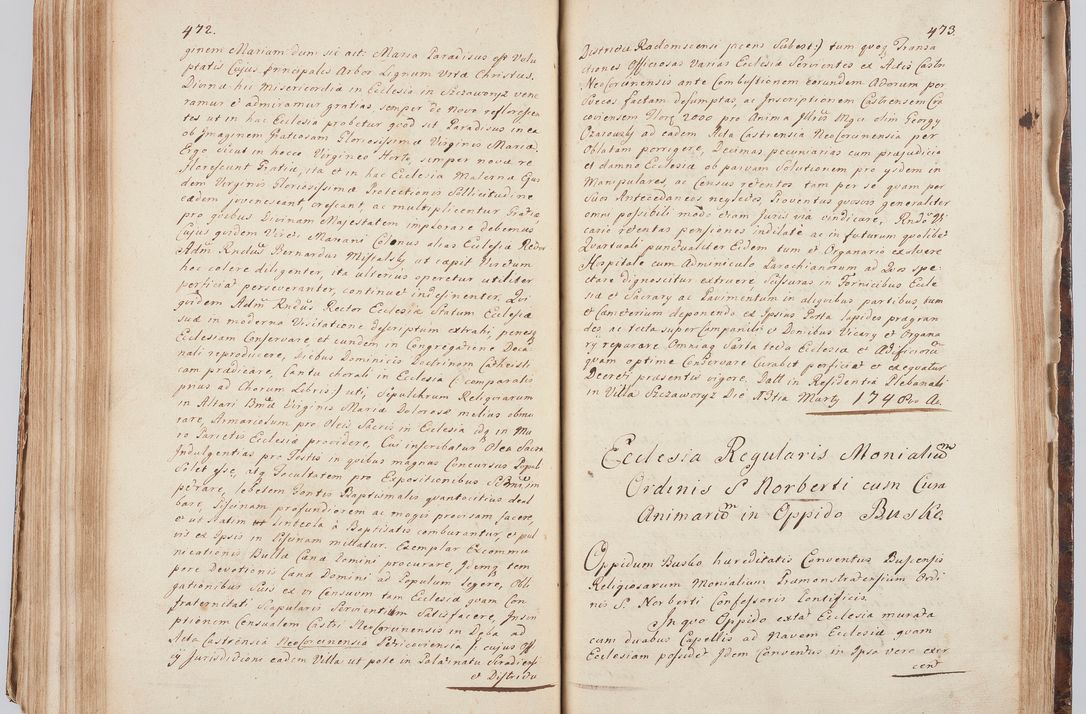 472.
ginem Mariam dum sic ait. Maria Paradisus est Volu
ptatis Cujus Principalis Arbor Lignum Vitæ Christus.
Divinæ hic Misericordiæ in Ecclesia in Szczaworyż vene
ramur et admiramur gratias semper de Novo reflorescen
tes ut in hac Ecclesia probetur quod sit Paradisus in ea
ob Imaginem Gratiosam Gloriosissimæ Virginis Mariæ,
Ergo sicut in hocce Virgineo Horto, semper novæ re
florescunt Gratiæ, ita et in hac Ecclesia Materna Ejus
dem Virginis Gloriosissimæ Protectionis Sollicitudine
eædem juvenescant, crescant, ac multiplicentur Gratiæ,
pro quibus Divinam Majestatem implorare debemus
Cujus quidem Viretí Mariani Colonus alias Ecclesiæ Rector
Adm Rndus Bernardus Misalsky ut cæpit Viretum
hoc colere diligenter, ita ulterius operetur utiliter
perficiat perseveranter, continuet indesinenter. Qui
quidem Adm Rndus Rector Ecclesiæ Statum Ecclesiæ
suæ in moderna Visitatione descriptum extrahi, penesq
Ecclesiam Conservare, et eundem in Congregatione Deca
nali reproducere, Diebus Dominicis Doctrinam Catheisti
cam prædicare, Cantu chorali in Ecclesia (: comparatis
prius ad Chorum Libris:) uti, Sepulchrum Religiarum
in Altari Bmæ Virginis Mariæ Dolorosæ melius obmu
rare, Armariolum pro Oleis Sacris in Ecclesia idq in Mu
ro Parietis Ecclesiæ providere, Cui inscribatur Olea Sacra
Indulgentias pro Festis in quibus magnus Concursus Popul
Solet esse, atq Facultatem pro Expositionibus SSmi im
petrare, lebetem Fontis Baptismalis quantocitius deal
bare, Piscinam profundiorem ac magis provisam facere,
et ut statim ut Linteola à Baptisatis comburantur, et pul
vis ex ipsis in Piscinam mittatur. Exemplar Excommu
nicationis Bullæ Cænæ Domini procurare, Idemq tem
pore Devotionis Cænæ Domini ad Populum legere, Obli
gationibus Suis ex vi Censuum tam Ecclesiæ quam Con
fraternitati Scapularis Servientium Satisfacere, Inscri
ptionem Censualem Castri NeoCorcinensis in Dęba ad
Acta Castrensia NeoCorcinensia Petricoviensia p. cujus Off
ÿ Jurisdictione eadem Villa ut pote in Palatinatu Siradiensi
et Districtu
473
Districtu Radomscensi jacens Subest:) tum quoq Transa
ctiones Officiosas Varias Ecclesiæ Servientes ex Actis Castri
NeoCorcinensis ante Combustionem eorundem Actorum per
Svecos factam desumptas, ac Inscriptionem Castrensem Cra
coviensem flor. 2000 pro Anima Illris Mgci olim Georgy
Ozarowsky ad eadem Acta Castrensia NeoCorcinensia per
Oblatam porrigere, Decimas pecuniarias cum præjudicio
et damno Ecclesiæ ob parvam Solutionem pro ysdem in
Manipulares, ac Census retentos tam per se quam per
Suos Antecedaneos neglectos, Proventus quosvis generaliter
omni possibili modo etiam Juris via vindicare. Rndo Vi
cario retentas pensiones indilatè ac in futurum quolibet
Quartuali punctualiter Eidem tum et Organario exolvere
Hospitale cum Adminiculo Parochianorum ad Quos spe
ctare dignoscitur extruere Scissuras in Fornicibus Eccle
siæ et Sacrary ac Pavimentum in aliquibus partibus tum
et Cæmeterium deponendo ex ipsius Porta Lapides prægran
des, ac tecta super Campanili et Domibus Vicary et Organa
rÿ reparare Omniaq Sarta tecta Ecclesiæ et Ædificiorum
quam optime Conservare Curabit perficiet et exequatur
Decreti præsentis vigore. Datt in Residentia Plebanali
in Villa Szczaworyż Die 13tia Marty 1740 o An.
Ecclesia Regularis Monialium
Ordinis S Norberti cum Cura
Animarum in Oppido Busko.
Oppidum Busko hæreditatis Conventus Buscensis
Religiosarum Monialium Præmonstratensium Ordi
nis S. Norberti Confessoris Pontificis.
In quo Oppido exta Ecclesia murata
cum duabus Capellis ad Navem Ecclesiæ quam
Ecclesiam possidet Idem Conventus in Ipsa vero exer
cent